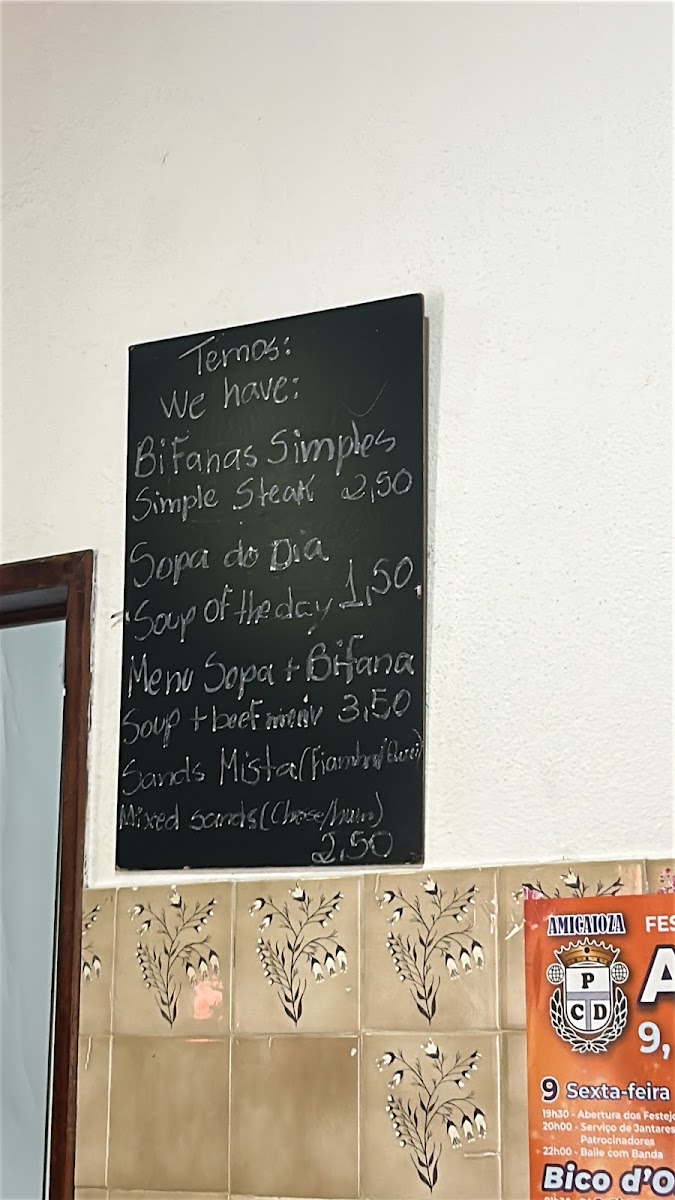 Temos:
We have:
Bifanas Simples
Simple Steak 2,50
Sopa do Dia
Soup of the day 1,50
Menu Sopa + Bifana
Soup + beef menu 3,50
Sands Mista (Fiambre/
Mixed sands (Chese/
2,50
AMIGAIOZA
FES
P
C D
A
9,
9 Sexta-feira
19h30 - Abertura dos Festejo
20h00 - Serviço de Jantares
Patrocinadores
22h00 - Baile com Banda
Bico d'O